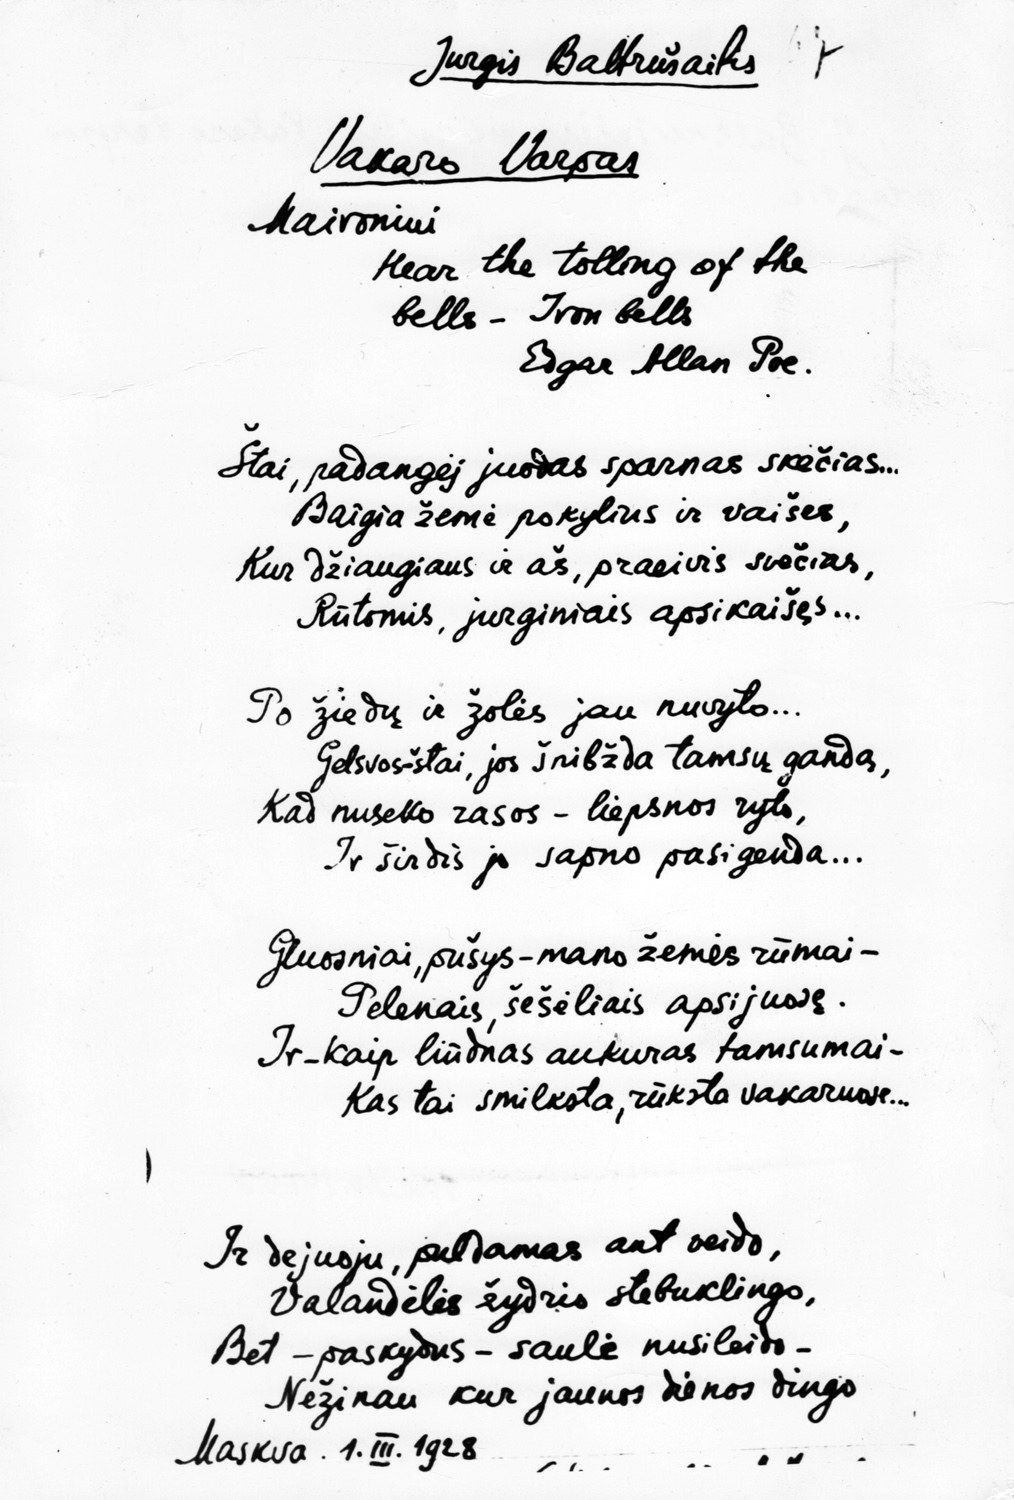 Jurgis Baltrušaitis
Vakaro Varpas
Maironiui
Hear the tolling of the
bells - Iron bells
Edgar Allan Poe.
Štai, padangėj juodas sparnas skečias...
Baigia žemė pokylius ir vaišes,
Kur džiaugiaus ir aš, praeivis svečias,
Rūtomis, jurginiais apsikaišęs...
Po žiedų ir žolės jau nuvyto...
Gelsvos-štai, jos šnibžda tamsų gandą,
Kad nuseko rasos - liepsnos ryto,
Ir širdis jo sapno pasigenda...
Gluosniai, pušys - mano žemės rūmai -
Pelenais, šešėliais apsijuosę.
Ir - kaip liūdnas aukuras tamsumai -
Kas tai smilksta, rūksta vakaruose...
Ir dejuoju, puldamas ant veido,
Valandėlės žydrio stebuklingo,
Bet - paskydus - saulė nusileido -
Nežinau kur jaunos dienos dingo
Maskva. 1. III. 1928